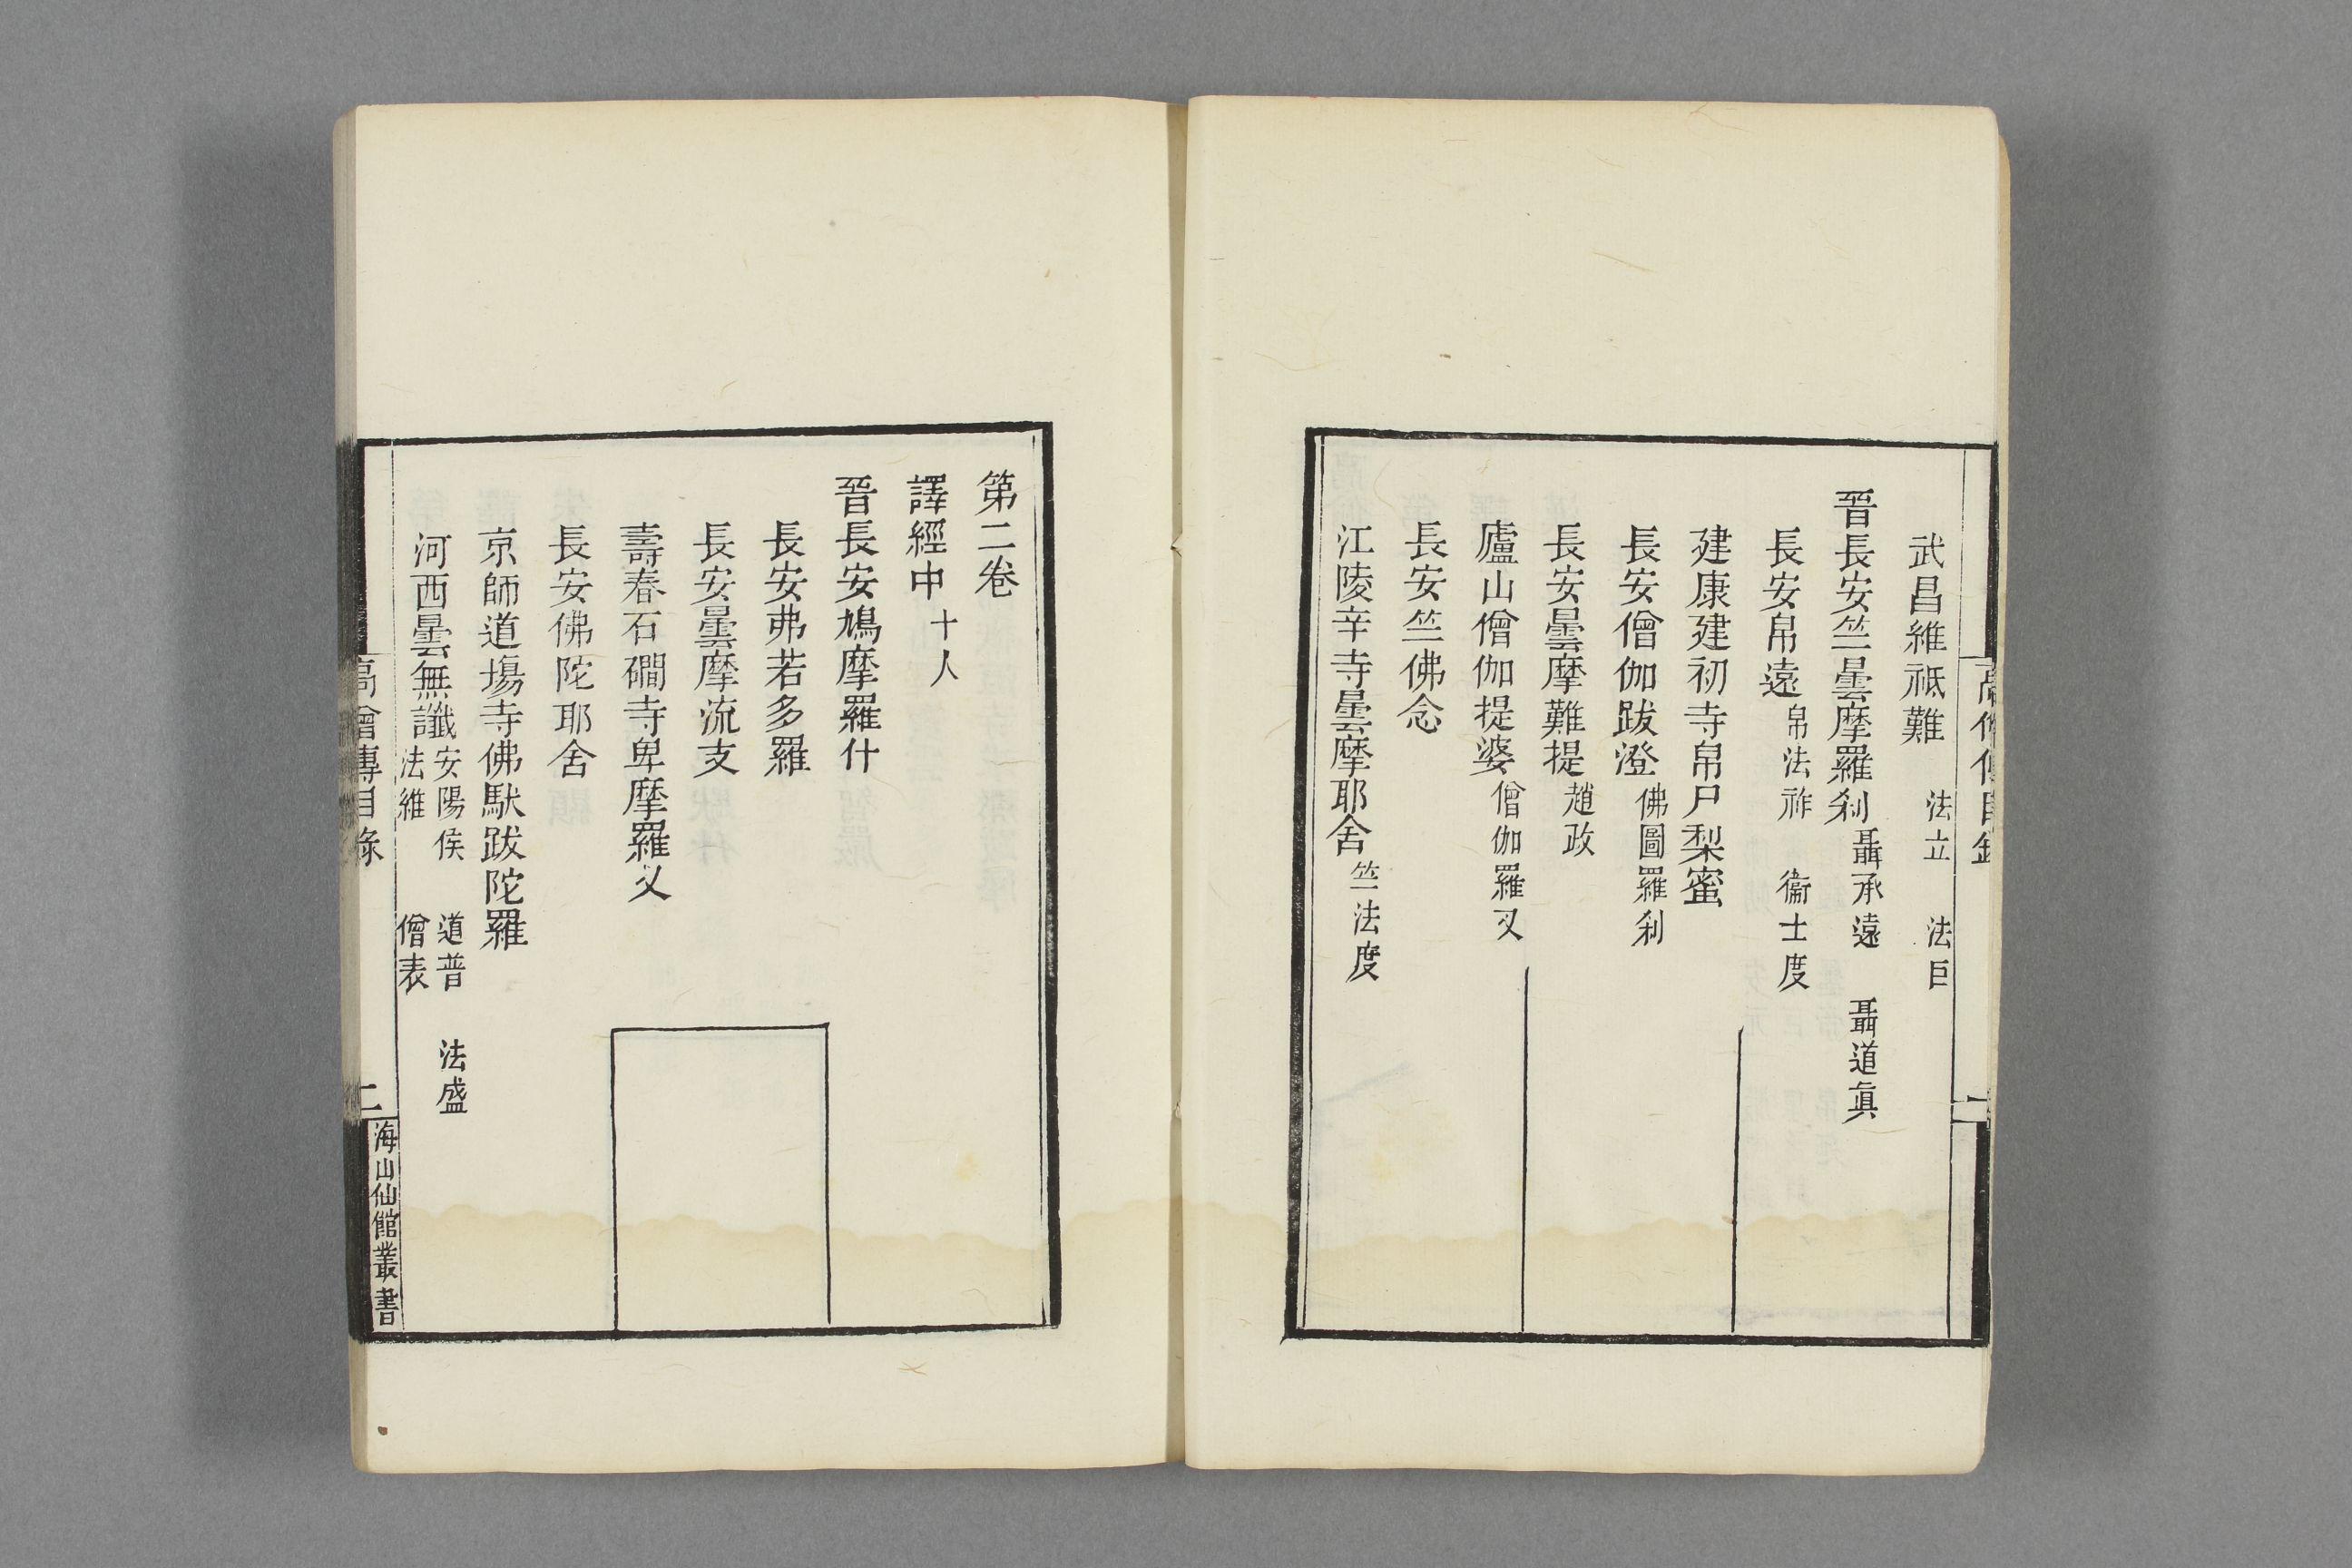 武昌維祗難 法立 法巨
晉長安竺曇摩羅刹 聶承遠 聶道眞
長安帛遠 帛法祚 衞士度
建康建初寺帛尸梨蜜
長安僧伽跋澄 佛圖羅刹
長安曇摩難提 趙政
廬山僧伽提婆 僧伽羅叉
長安竺佛念
江陵辛寺曇摩耶舍 竺法度
第二卷
譯經中 十人
晉長安鳩摩羅什
長安弗若多羅
長安曇摩流支
壽春石磵寺卑摩羅叉
長安佛陀耶舍
京師道塲寺佛馱跋陀羅
河西曇無讖 安陽侯 道普 法盛
法維 僧表
高僧傳目錄 二 海山仙館叢書